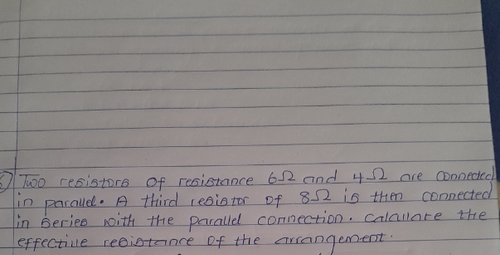 5) Two resistors of resistance 6Ω and 4Ω are connected
in parallel. A third resistor of 8Ω is then connected
in series with the parallel connection. Calculate the
effective resistance of the arrangement.